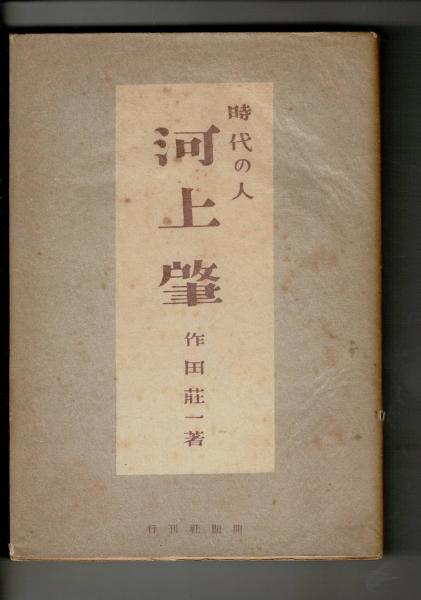 時代の人
河上肇
作田莊一著
開顯社刊行